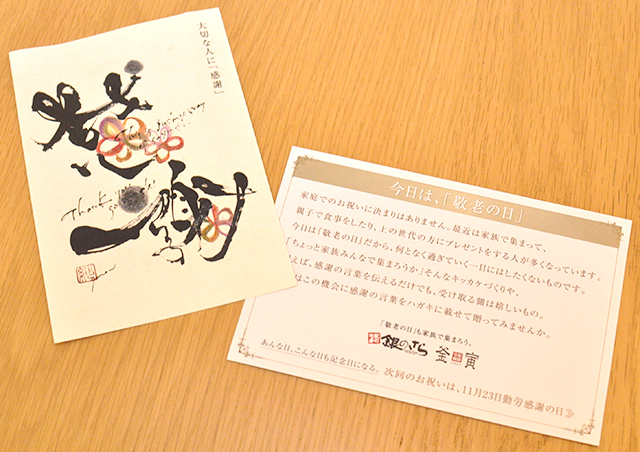 大切な人に「感謝」
感謝
今日は、「敬老の日」
家庭でのお祝いに決まりはありません。最近は家族で集まって、
親子で食事をしたり、上の世代の方にプレゼントをする人が多くなっています。
今日は「敬老の日」だから、何となく過ぎていく一日にはしたくないものです。
「ちょっと家族みんなで集まろうか」そんなキッカケづくりや、
えば、感謝の言葉を伝えるだけでも、受け取る側は嬉しいもの。
はこの機会に感謝の言葉をハガキに載せて贈ってみませんか。
「敬老の日」も家族で集まろう。
銀のさら 釜寅
あんな日、こんな日も記念日になる。 次回のお祝いは、11月23日勤労感謝の日